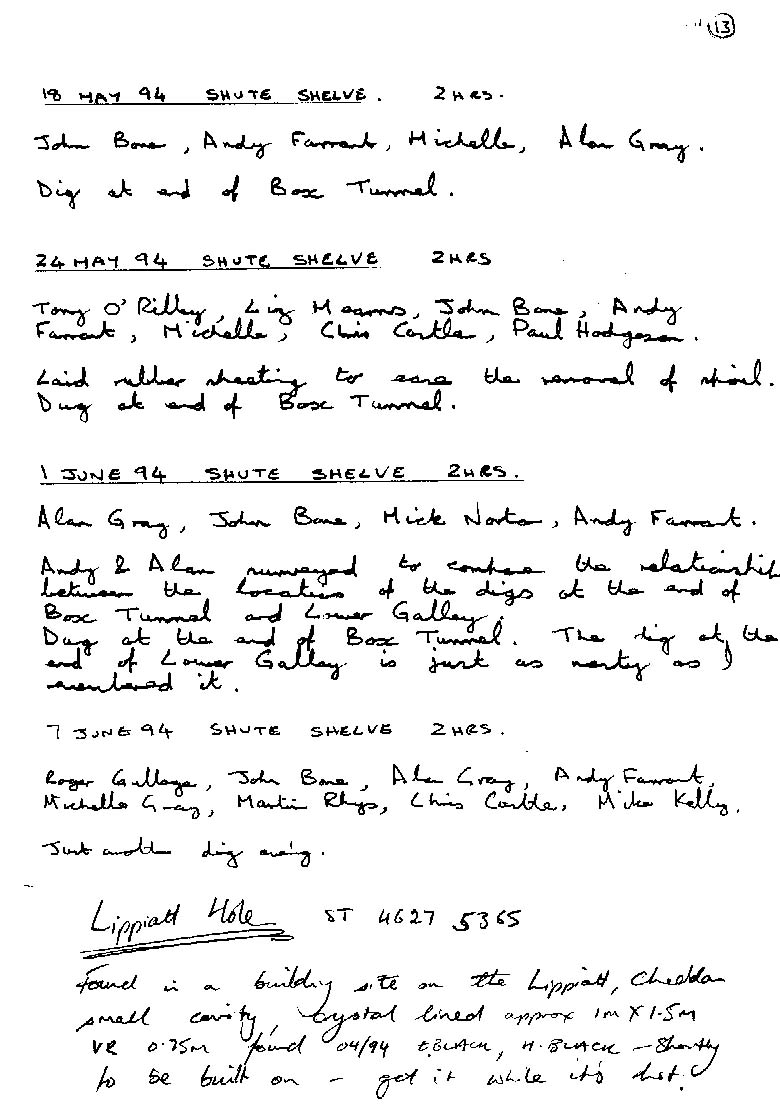 13
18 MAY 94 SHUTE SHELVE. 2HRS.
John Bone, Andy Farrant, Michelle, Alan Gray.
Dig at end of Box Tunnel.
24 MAY 94 SHUTE SHELVE 2HRS
Tony O'Rilley, Liz Mearns, John Bone, Andy
Farrant, Michelle, Chris Castle, Paul Hodgeson.
Laid rubber sheeting to ease the removal of spoil.
Dug at end of Box Tunnel.
1 JUNE 94 SHUTE SHELVE 2HRS.
Alan Gray, John Bone, Mick Norton, Andy Farrant.
Andy & Alan surveyed to confirm the relationship
between the location of the digs at the end of
Box Tunnel and Lower Galley.
Dug at the end of Box Tunnel. The dig at the
end of Lower Galley is just as nasty as I
it.
7 JUNE 94 SHUTE SHELVE 2HRS.
Roger John Bone, Alan Gray, Andy Farrant,
Michelle Gray, Martin Rhys, Chris Castle, Mike Kelly.
Just another dig evening.
Lippiatt Hole ST 4627 5365
Found in a building site on the Lippiatt, Cheddar
small cavity, crystal lined approx 1m X 1.5m
VR 0.75m found 04/94 E.BLACK, H.BLACK - Shortly
to be built on - get it while it's hot!